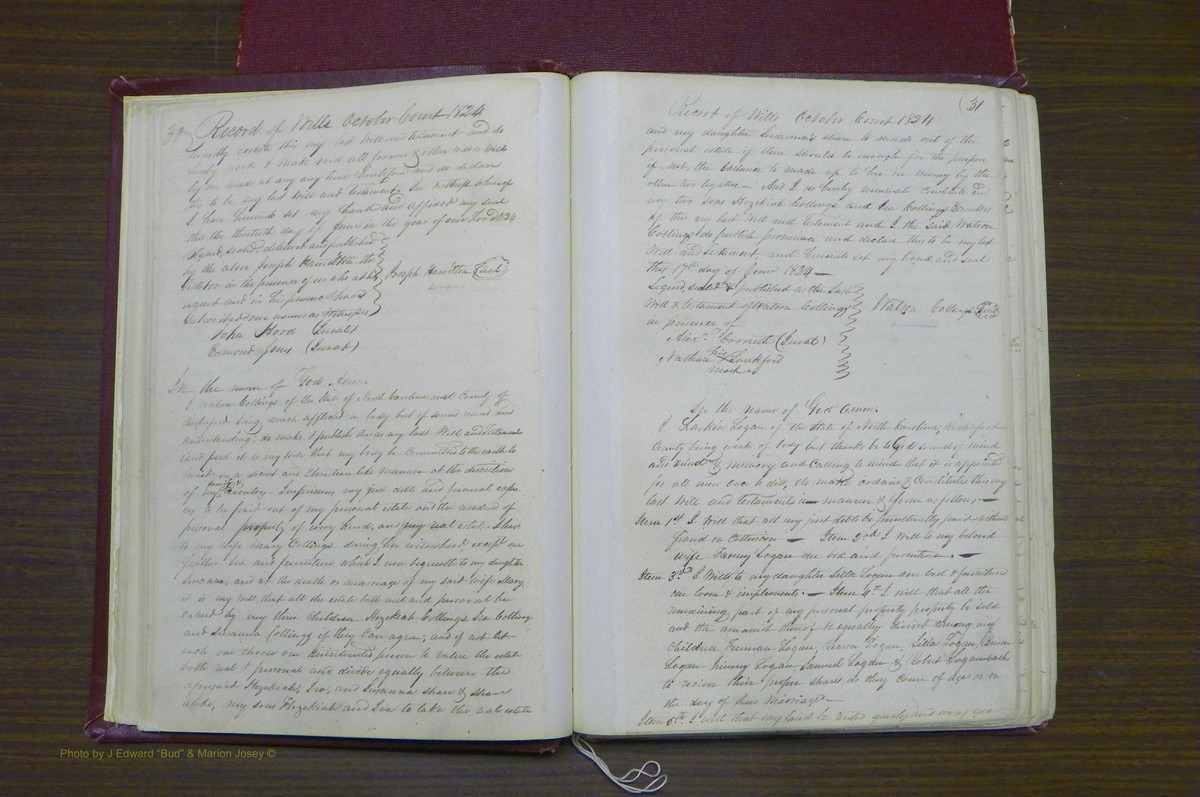 30 Record of Wills October Court 1824
hereby execute this my last Will and testament and do
hereby revoke & make void all former & other wills or Wills
by me made at any time heretofore and do declare
this to be my last Will and testament. In witness whereof
I have hereunto set my hand and affixed my seal
this the thirtieth day of June in the year of our Lord 1824
Signed, sealed delivered and published
by the above Joseph Hamilton the
testator in the presence of us who at his Joseph Hamilton (Seal)
request and in his presence have
subscribed our names as Witnesses
John Hord (Jurat)
Edmond Jones (Jurat)
In the name of God Amen.
I Watson Collings of the State of North Carolina and County of
Rutherford being much afflicted in body but of sound mind and
understanding, do make & publish this as my last Will and Testament
and first it is my wish that my body be Committed to the earth to
in a decent and Christian like manner at the discretion
of my family & Executors. Imprimis my just debts and funeral expen
ces to be paid out of my personal estate and the residue of
personal property of every kind, and my real estate I leave
to my wife Mary Collings during her widowhood, except one
feather bed and furniture which I now bequeath to my daughter
Susanna; and at the death or marriage of my said wife Mary
it is my will that all the estate both real and personal be
valued by my three Children Hezekiah Collings Ira Colling
and Susanna Collings if they Can agree; and if not let
each one choose one disinterested person to value the estate
both real & personal and divide equally between the
aforesaid Hezekiah, Ira, and Susanna share & share
alike, my sons Hezekiah and Ira to take the real estate
(31
Record of Wills October Court 1824
and my daughter Susanna's share to made out of the
personal estate if there should be enough for the purpose
if not, the ballance to made up to her in money by the
other two legatees.— And I do hereby nominate Constitute and
my two sons Hezekiah Collings and Ira Collings Executors
of this my last Will and testament and I the said Watson
Collings do publish pronounce and declare this to be my last
Will and testament, and hereunto set my hand and seal
this 17th day of June 1824—
Signed, sealed & published as the last
Will & testament of Watson Collings Watson Collings (Seal)
in presence of
Alexr. Cornett (Jurat)
Nathan his X Lankford
mark
In the name of God Amen.
I Larkin Logan of the State of North Carolina, Rutherford
County being weak of body but thanks be to God sound of mind
and mind & memory and Calling to mind that it is appointed
for all men once to die, do make ordain & Constitute this my
last Will and testament in manner & form as follows—
Item 1st I Will that all my just debts be punctually paid without
fraud or Cattercion — Item 2nd I Will to my beloved
wife Fanny Logan one bed and furniture.—
Item 3rd I Will to my daughter Lilla Logan one bed & furniture
one loom & implements.— Item 4th I will that all the
remaining part of my personal property property be sold
and the amount thereof be equally divided among my
Children Freeman Logan, Logan, Lilla Logan,
Logan Logan Samuel Logan & Robert Logan each
to receive their proper shares as they come of age or on
the day of their Marriage—
Item 5th I will that my land be rented yearly and every year
Photo by J Edward "Bud" & Marion Josey ©